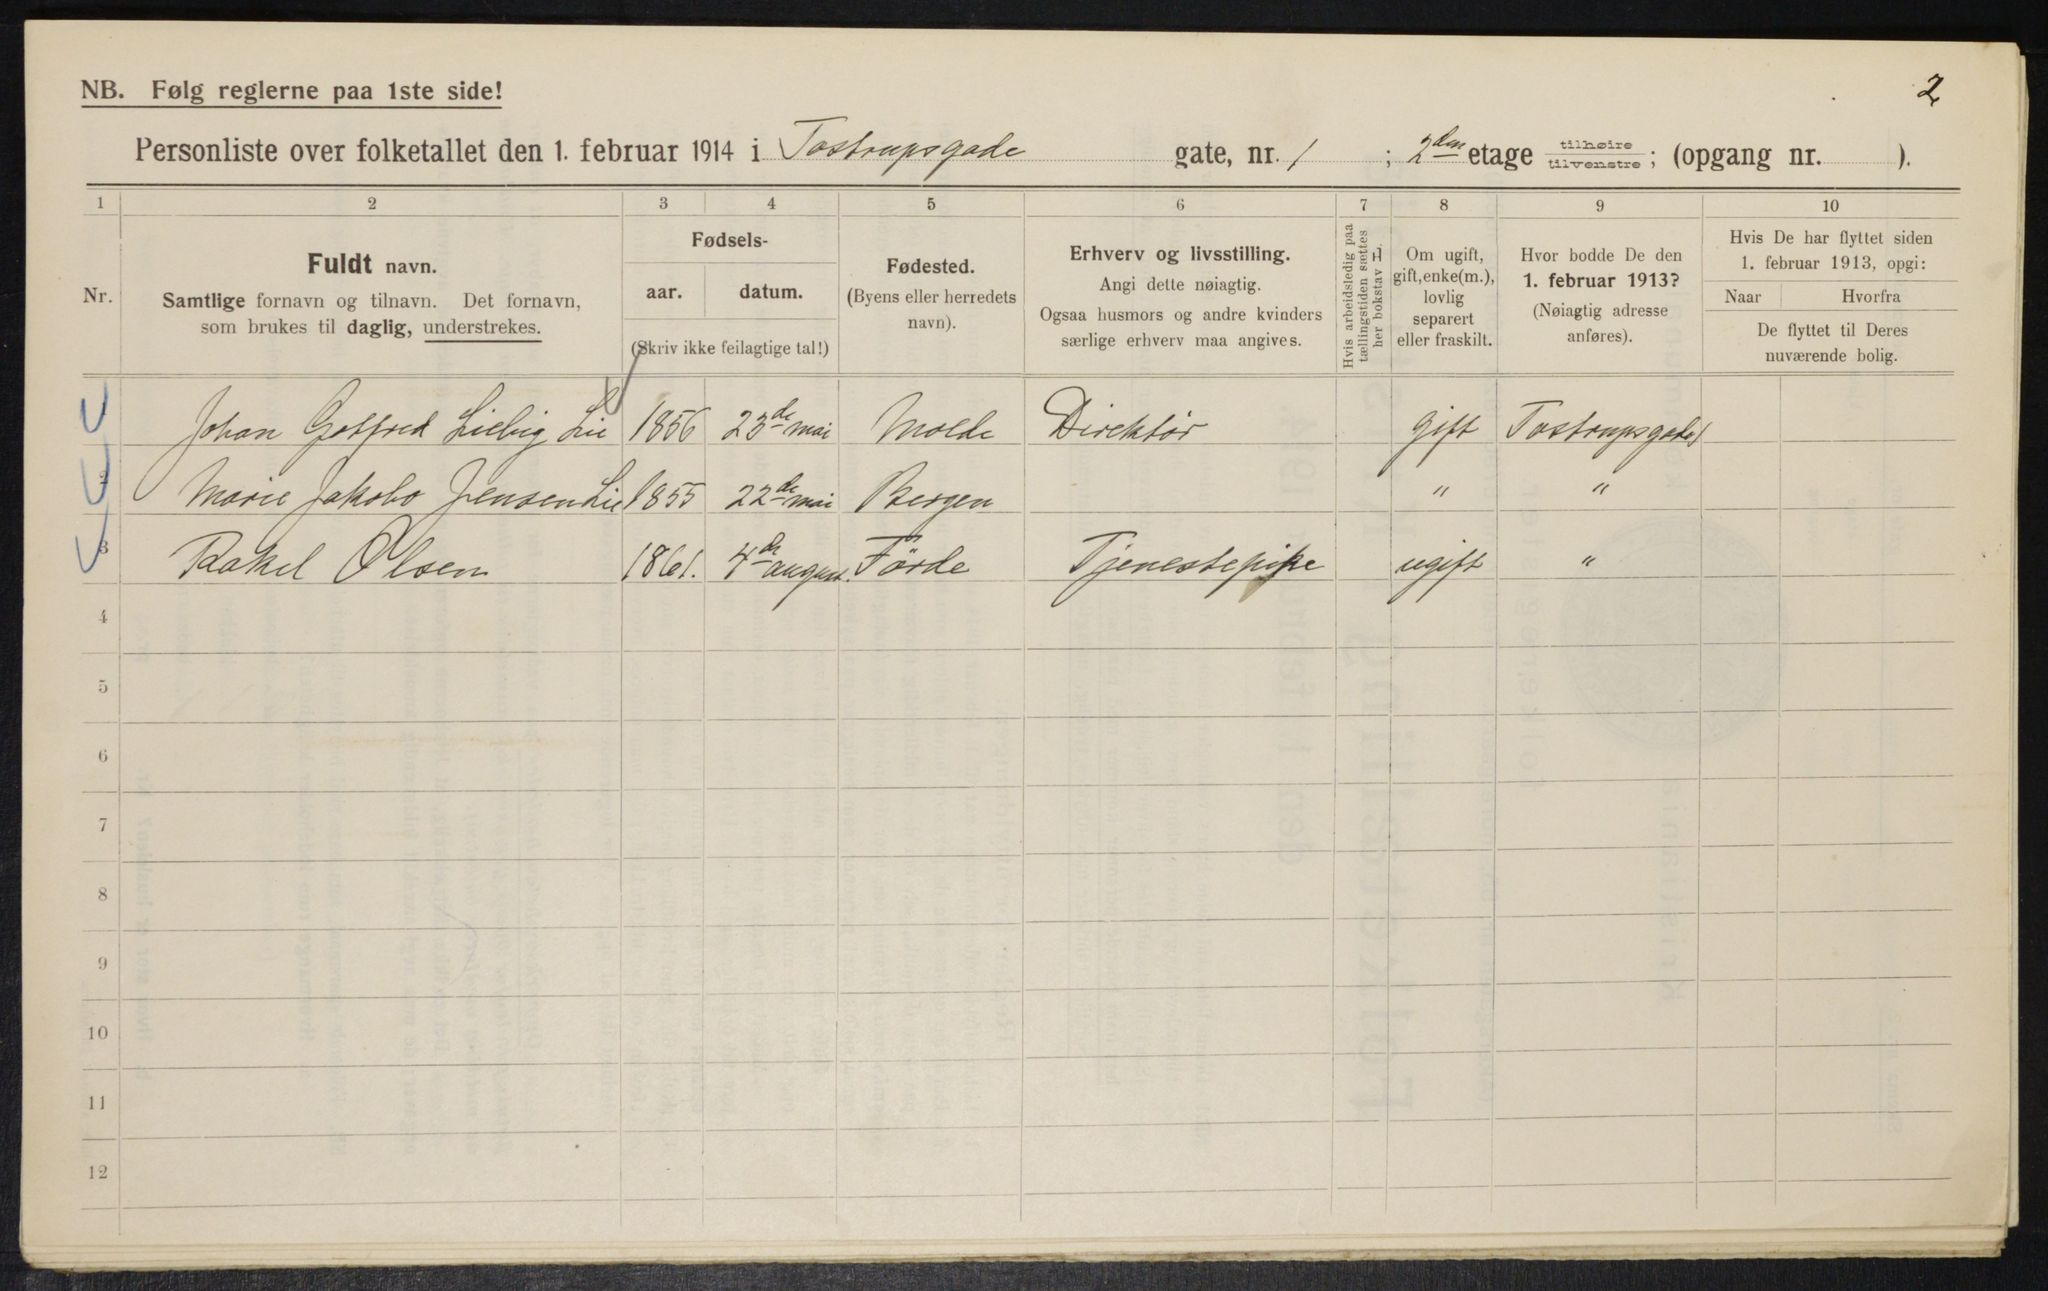 2
NB. Følg reglerne paa 1ste side!
Personliste over folketallet den 1. februar 1914 i Tostrupsgade gate, nr. 1 ; 2den etage tilhøire tilvenstre ; (opgang nr. ).
1 2 3 4 5 6 7 8 9 10
Nr.
Fuldt navn.
Samtlige fornavn og tilnavn. Det fornavn,
som brukes til daglig, understrekes.
Fødsels-
aar. datum.
(Skriv ikke feilagtige tal!)
Fødested.
(Byens eller herredets
navn).
Erhverv og livsstilling.
Angi dette nøiagtig.
Ogsaa husmors og andre kvinders
særlige erhverv maa angives.
Hvis arbeidsledig paa
tællingstiden sættes
her bokstav L.
Om ugift,
gift, enke(m.),
lovlig
separert
eller fraskilt.
Hvor bodde De den
1. februar 1913?
(Nøiagtig adresse
anføres).
Hvis De har flyttet siden
1. februar 1913, opgi:
Naar Hvorfra
De flyttet til Deres
nuværende bolig.
Johan Gotfred Liebig Lie 1856 23de mai Molde Direktör gift Tostrupsgade 1
2 Marie Jakoba Jensen Lie 1855 22de mai Bergen " "
3 Rakel Olsen 1861. 4de august. Förde Tjenestepike ugift "
4
5
6
7
8
9
10
11
12